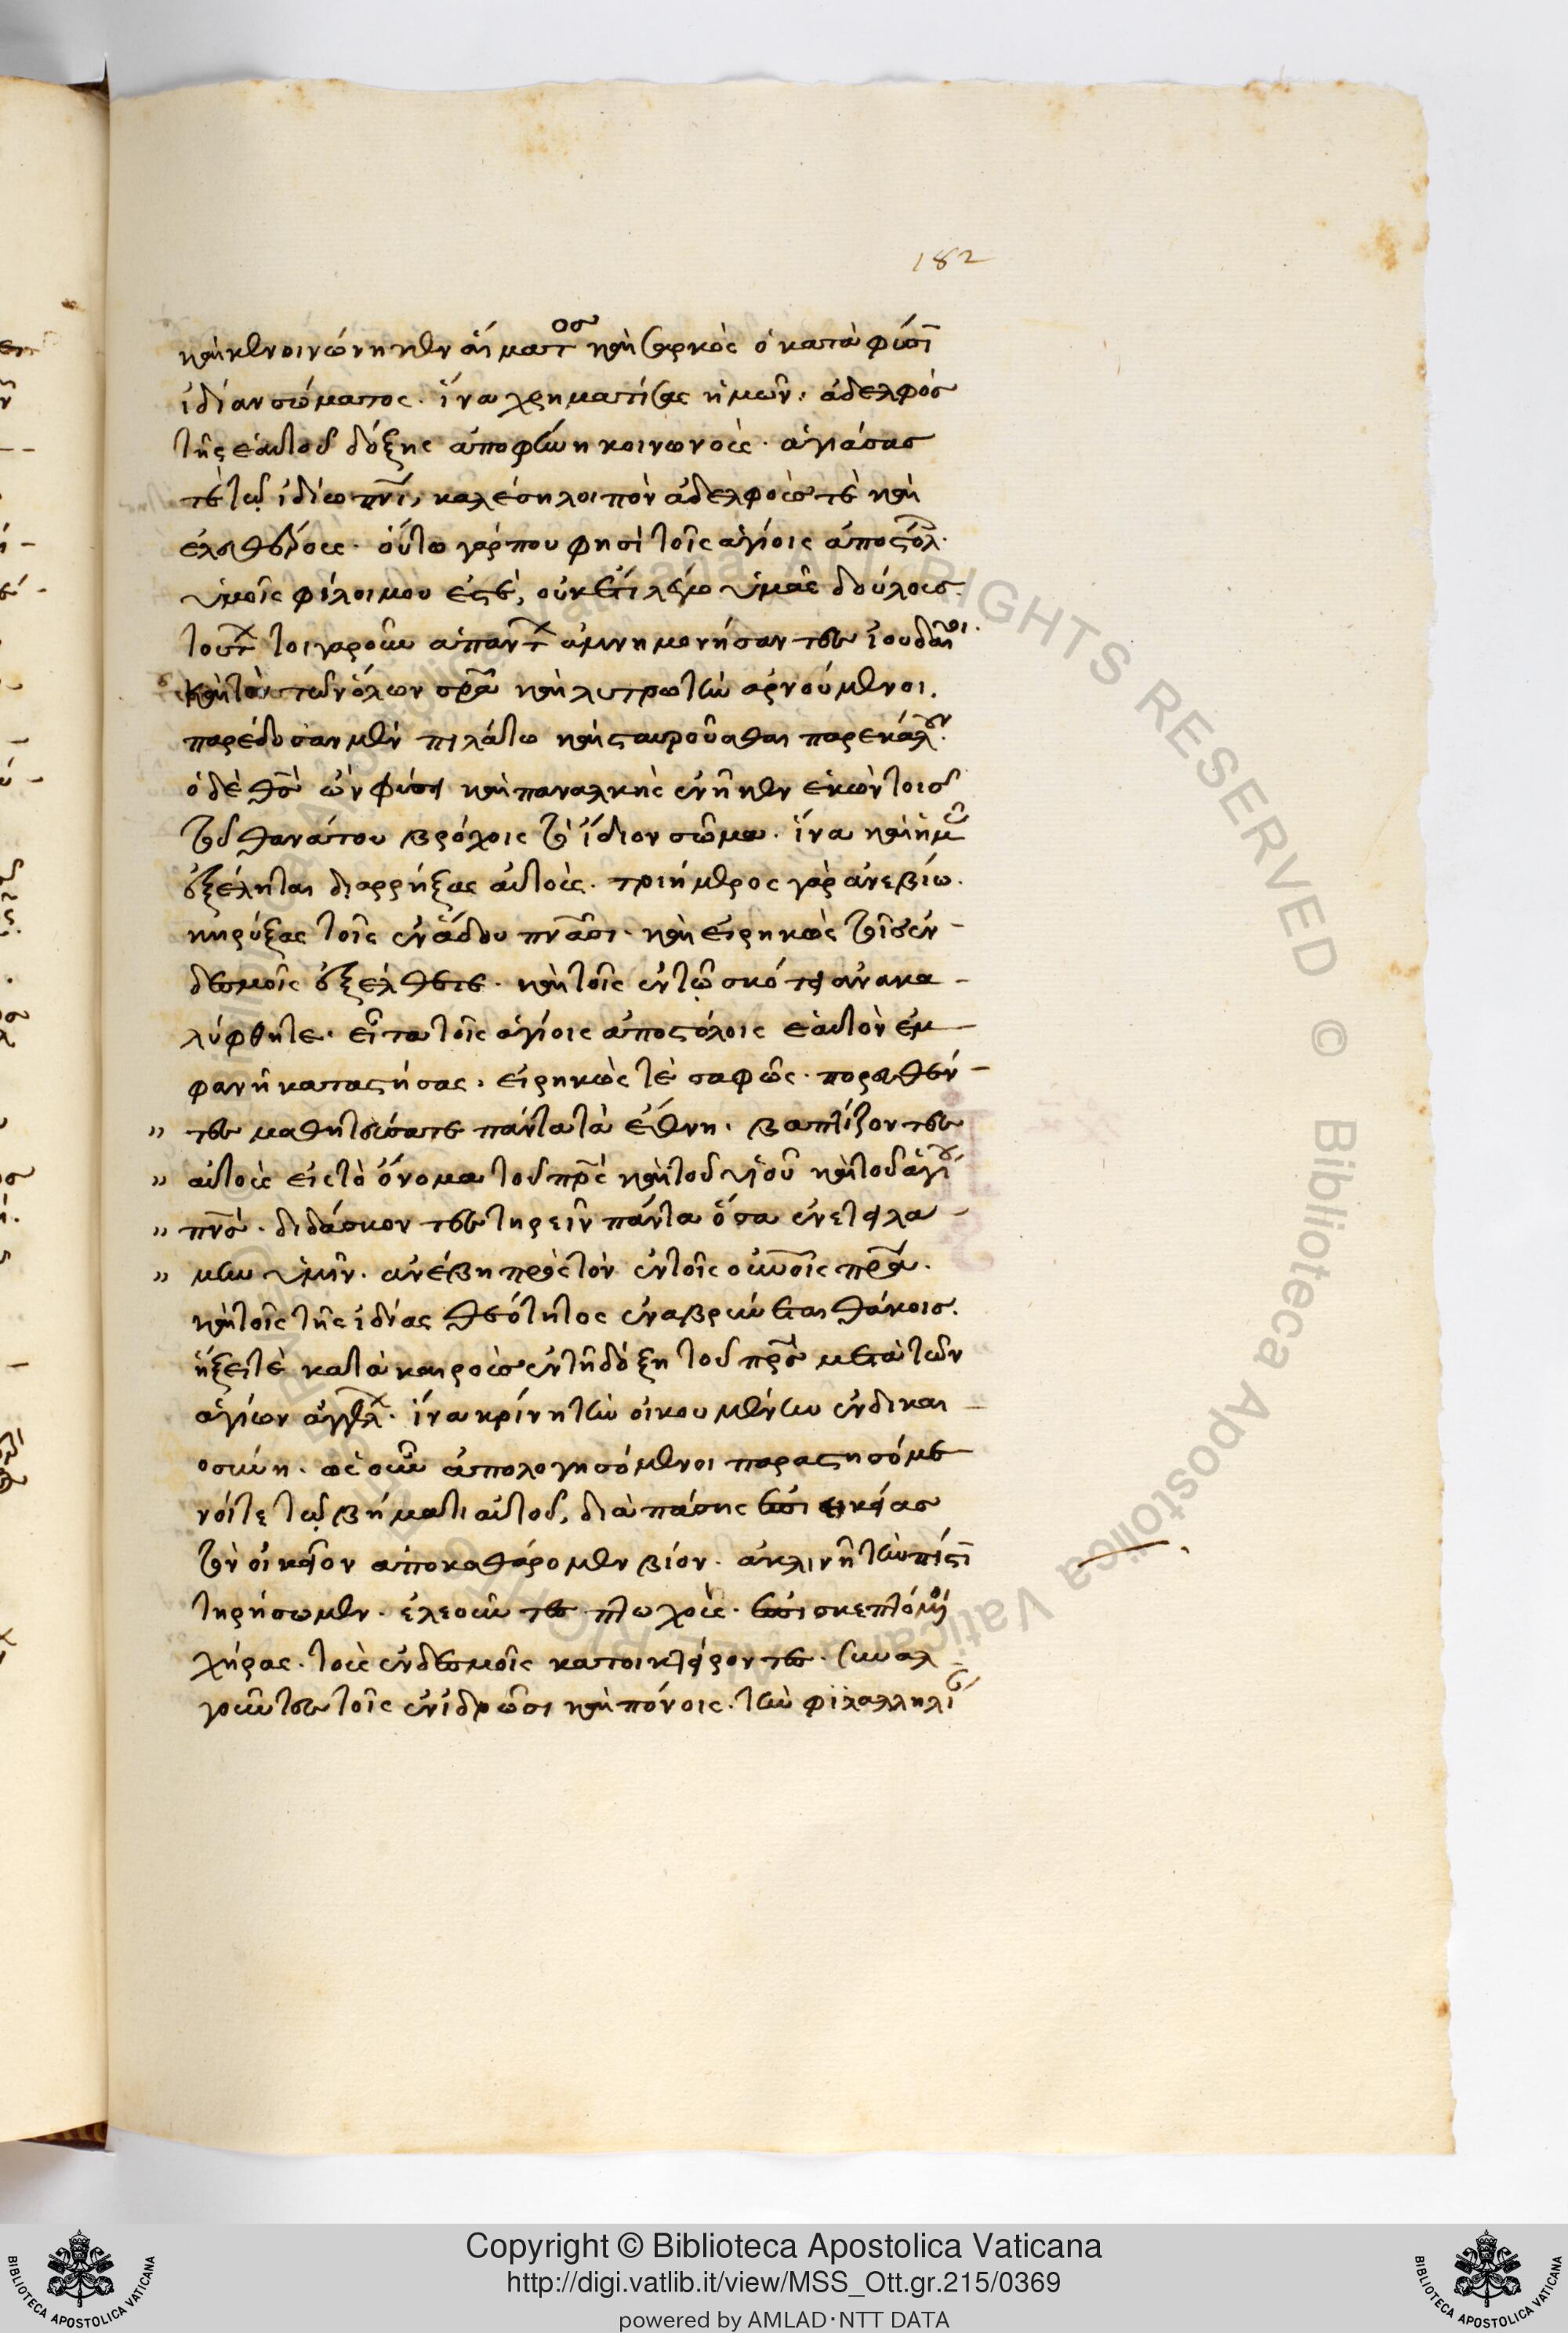 182
καὶ κεκοινώνηκεν αἵματος καὶ σαρκὸς ὁ κατὰ φύσιν
ἰδίαν ἀσώματος. ἵνα χρηματίσας ἡμῶν ἀδελφὸς
τῆς ἑαυτοῦ δόξης ἀποφήνη κοινωνοὺς. ἁγιάσας
τὲ τῷ ἰδίω πνι, καλέση λοιπὸν ἀδελφοὺς τὲ καὶ
ἐλευθέρους. οὕτω γάρ που φησὶ τοῖς ἁγίοις ἀποστόλ.
ὑμεῖς φίλοι μού ἐστὲ, οὐκέτι λέγω ὑμᾶς δούλους.
τούτων τοιγαροῦν ἁπάντων ἀμνημονήσαντες ἰουδαῖοι.
καὶ τὸν τῶν ὅλων σρα καὶ λυτρωτὴν ἀρνούμενοι.
παρέδοσαν μὲν πιλάτω καὶ σταυροῦσθαι παρεκάλουν.
ὁ δὲ θς ὢν φύσει καὶ παναλκὴς ἐνῆκεν ἑκὼν τοῖς
τοῦ θανάτου βρόχοις τὸ ἴδιον σῶμα. ἵνα καὶ ἡμᾶς
ἐξέληται διαρρήξας αὐτοὺς. τριήμερος γὰρ ἀνεβίω.
κηρύξας τοῖς ἐν ἅδου πνασι. καὶ εἰρηκὼς τοῖς ἐν
δεσμοῖς ἐξέλθετε. καὶ τοῖς ἐν τῷ σκότει ἀνακα-
λύφθητε. εἶτα τοῖς ἁγίοις ἀποστόλοις ἑαυτὸν ἐμ-
φανῆ καταστήσας. εἰρηκὼς τὲ σαφῶς. πορευθέν-
" τες μαθητεύσατε πάντα τὰ ἔθνη. βαπτίζοντες
" αὐτοὺς εἰς τὸ ὄνομα τοῦ πρς καὶ τοῦ υἱοῦ καὶ τοῦ ἁγίου
" πνς. διδάσκοντες τηρεῖν πάντα ὅσα ἐνετειλά-
" μην ὑμῖν. ἀνέβη πρὸς τὸν ἐν τοῖς οὐνοῖς πρα.
καὶ τοῖς τῆς ἰδίας θεότητος ἐναβρύνεται θάκοις.
ἥξει τὲ κατὰ καιροὺς ἐν τῆ δόξη τοῦ πρς μετὰ τῶν
ἁγίων ἀγγέλων. ἵνα κρίνη τὴν οἰκουμένην ἐν δικαι-
οσύνη. ὡς οὖν ἀπολογησόμενοι παραστησόμε
νοί τε τῷ βήματι αὐτοῦ, διὰ πάσης ἐπιεικείας
τὸν οἰκεῖον ἀποκαθάρομεν βίον. ἀκλινῆ τὴν πίστιν
τηρήσωμεν. ἐλεοῦντες πτωχοὺς. ἐπισκεπτόμενοι
χήρας. τοὺς ἐν δεσμοῖς κατοικτείροντες. συναλ-
γοῦντες τοῖς ἐν ἱδρῶσι καὶ πόνοις. τὴν φιλαλληλίαν
Copyright © Biblioteca Apostolica Vaticana
http://digi.vatlib.it/view/MSS_Ott.gr.215/0369
powered by AMLAD·NTT DATA